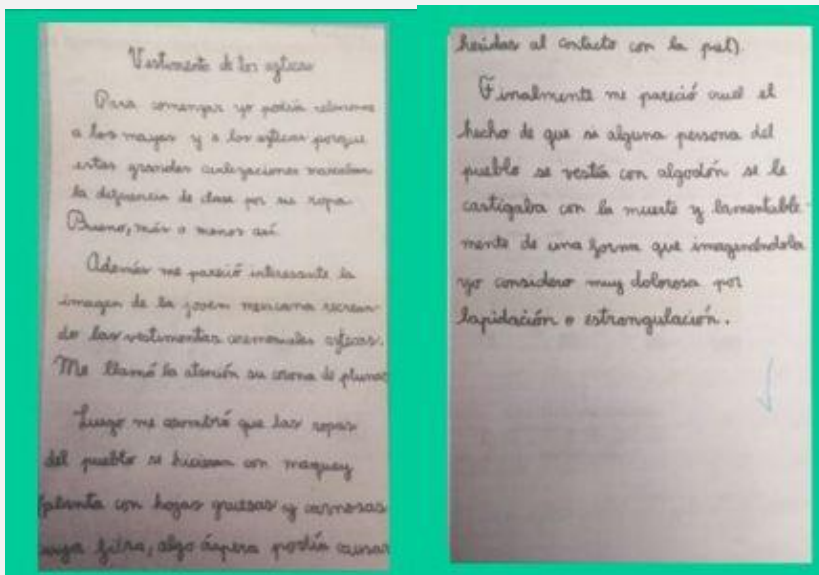 Vestimenta de los aztecas
Para comenzar yo podría relacionar
a los mayas y a los aztecas porque
estas grandes civilizaciones marcaban
la diferencia de clase por su ropa.
Bueno, más o menos así.
Además me pareció interesante la
imagen de la joven mexicana recrean-
do las vestimentas ceremoniales aztecas.
Me llamó la atención su corona de plumas
Luego me asombró que las ropas
del pueblo se hicieran con maguey
(planta con hojas gruesas y carnosas
cuya fibra, algo áspera podía causar
heridas al contacto con la piel).
Finalmente me pareció cruel el
hecho de que si alguna persona del
pueblo se vestía con algodón se le
castigaba con la muerte y lamentable-
mente de una forma que imaginándola
yo considero muy dolorosa por
lapidación o estrangulación.